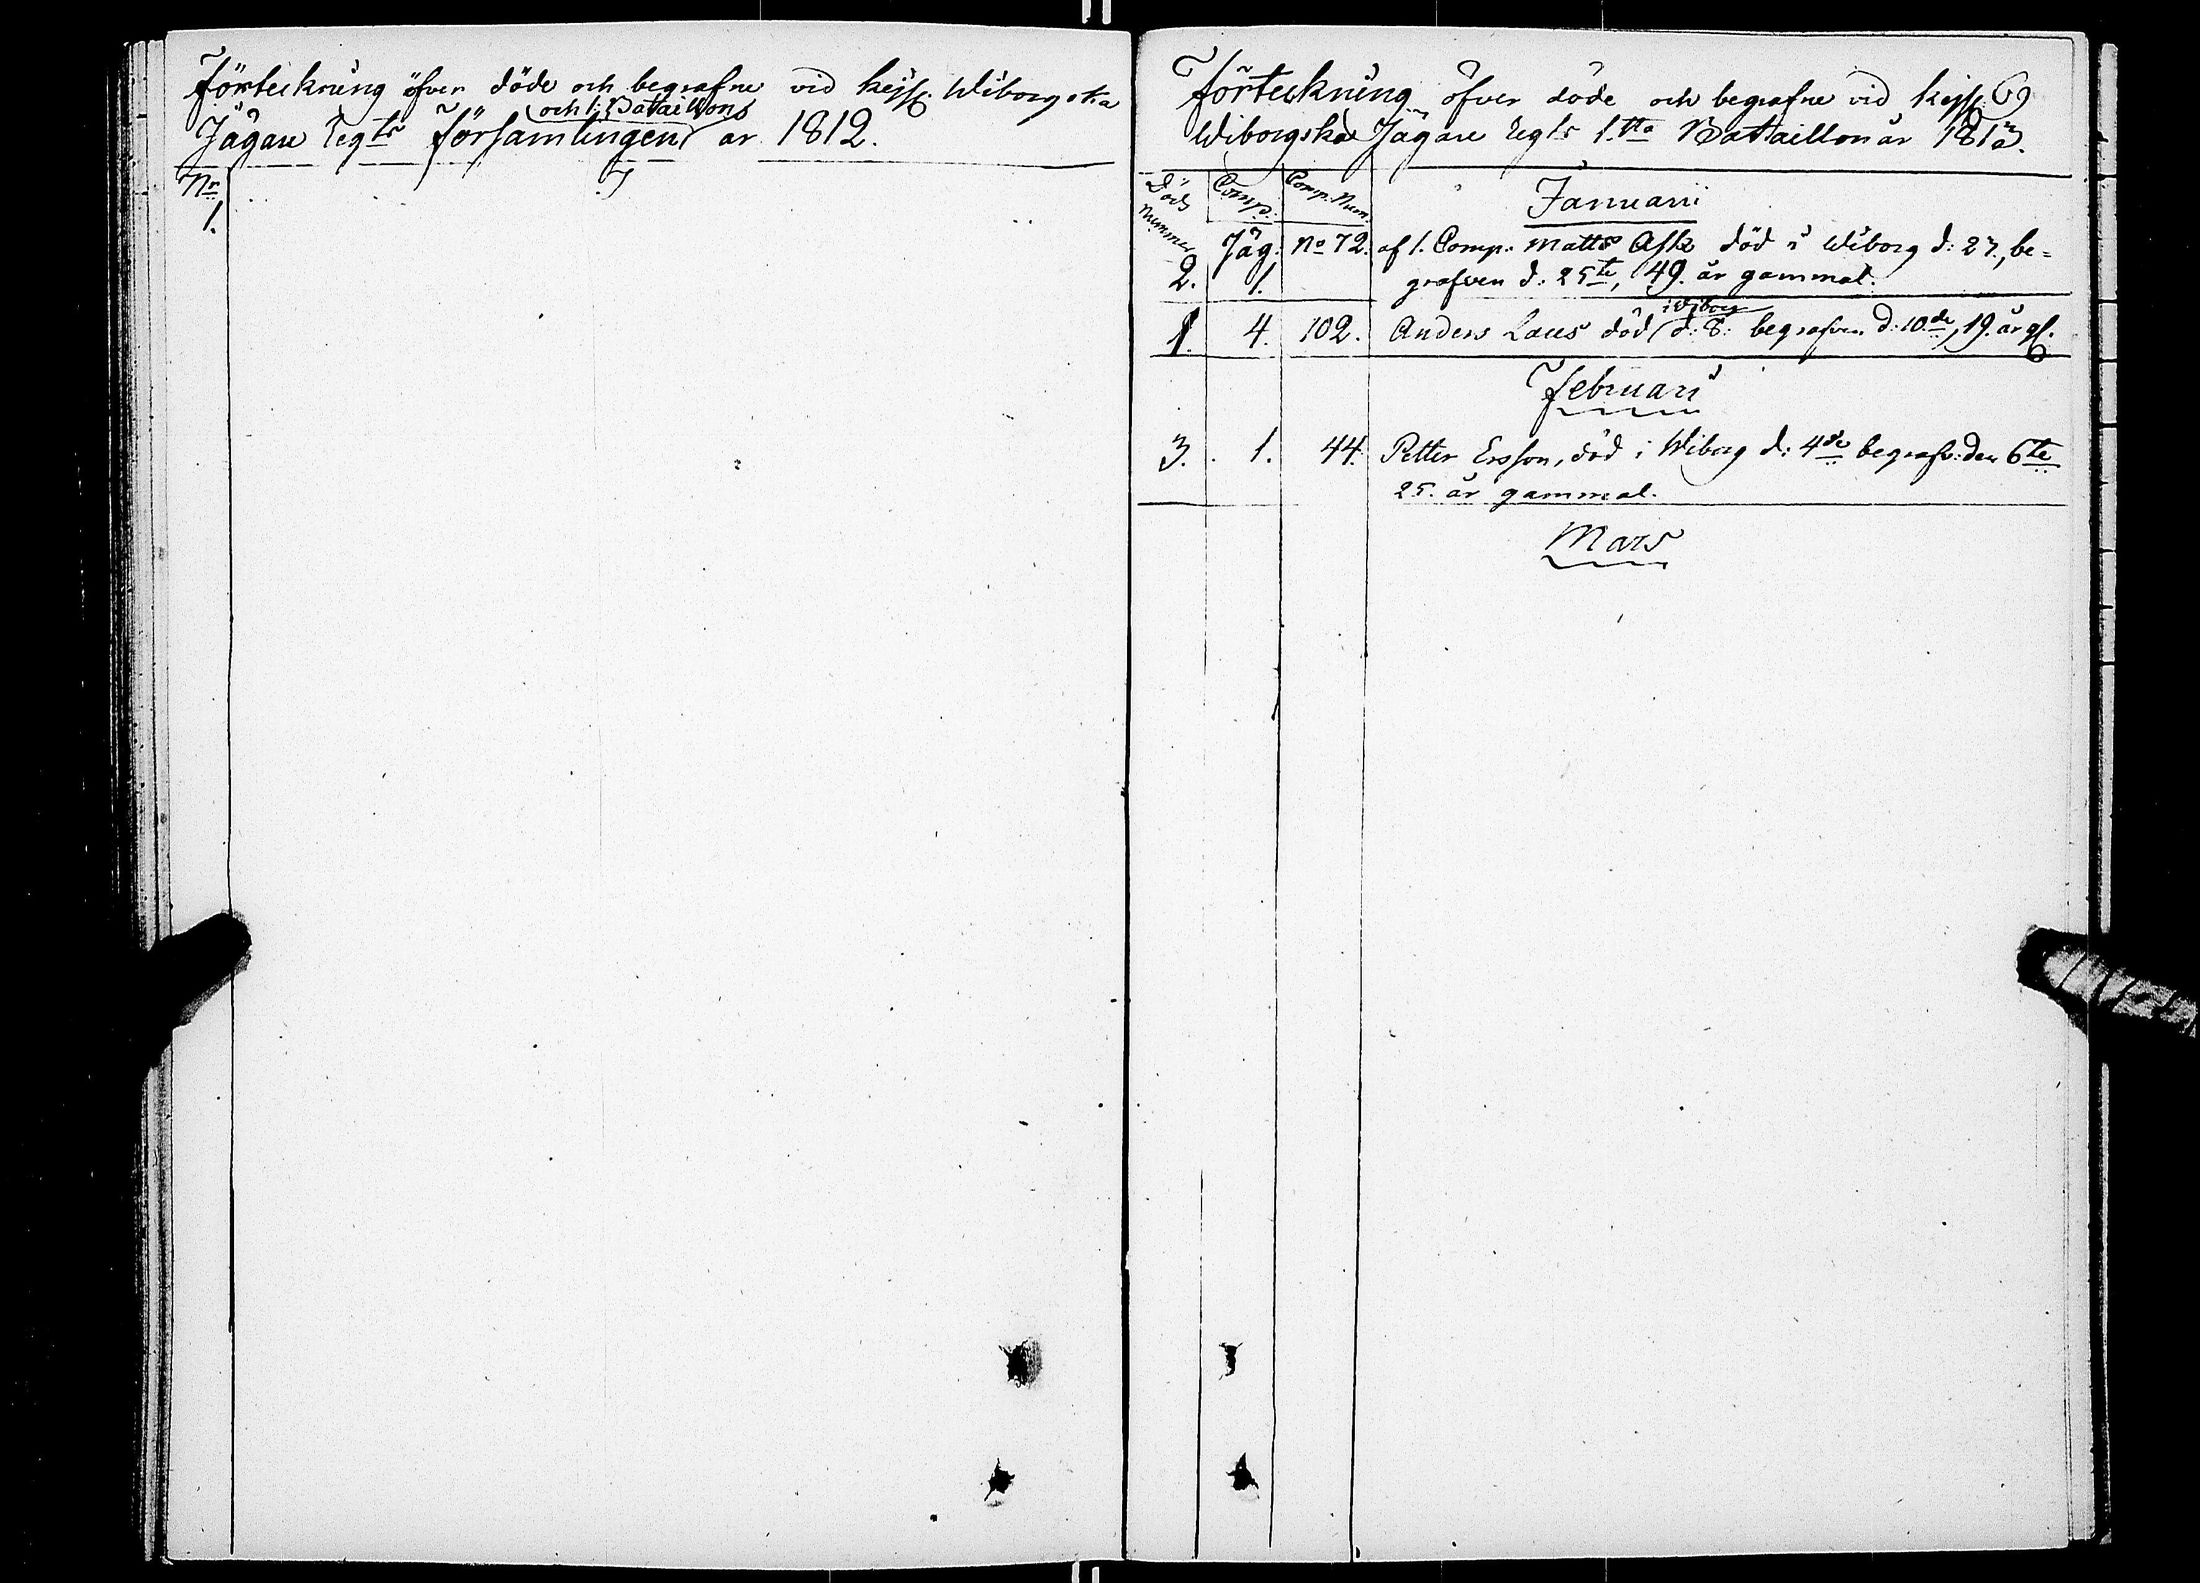 Förteckning öfver döde och begrafne vid Kejs. Wiborgska
och 1: Bataillons
Jägare Regts församlingen år 1812.
Nr
1.
69
Förteckning öfver döde och begrafne vid Kejs.
Wiborgska Jägare Regts 1.sta Bataillon år 1813.
Döds Nummer Comp. Comp. Num. Januarii
Jäg: No 72. af 1. Comp. Matts Ask död i Wiborg d: 23., be=
2. 1. grafven d: 25te, 49. år gammal.
i Wiborg
1. 4. 102. Anders Laus död d: 8: begrafven d: 10.de, 19. år gl.
Februari
3. 1. 44. Petter Ersson, död i Wiborg d: 4de begrafv: den 6te
25. år gammal.
Mars